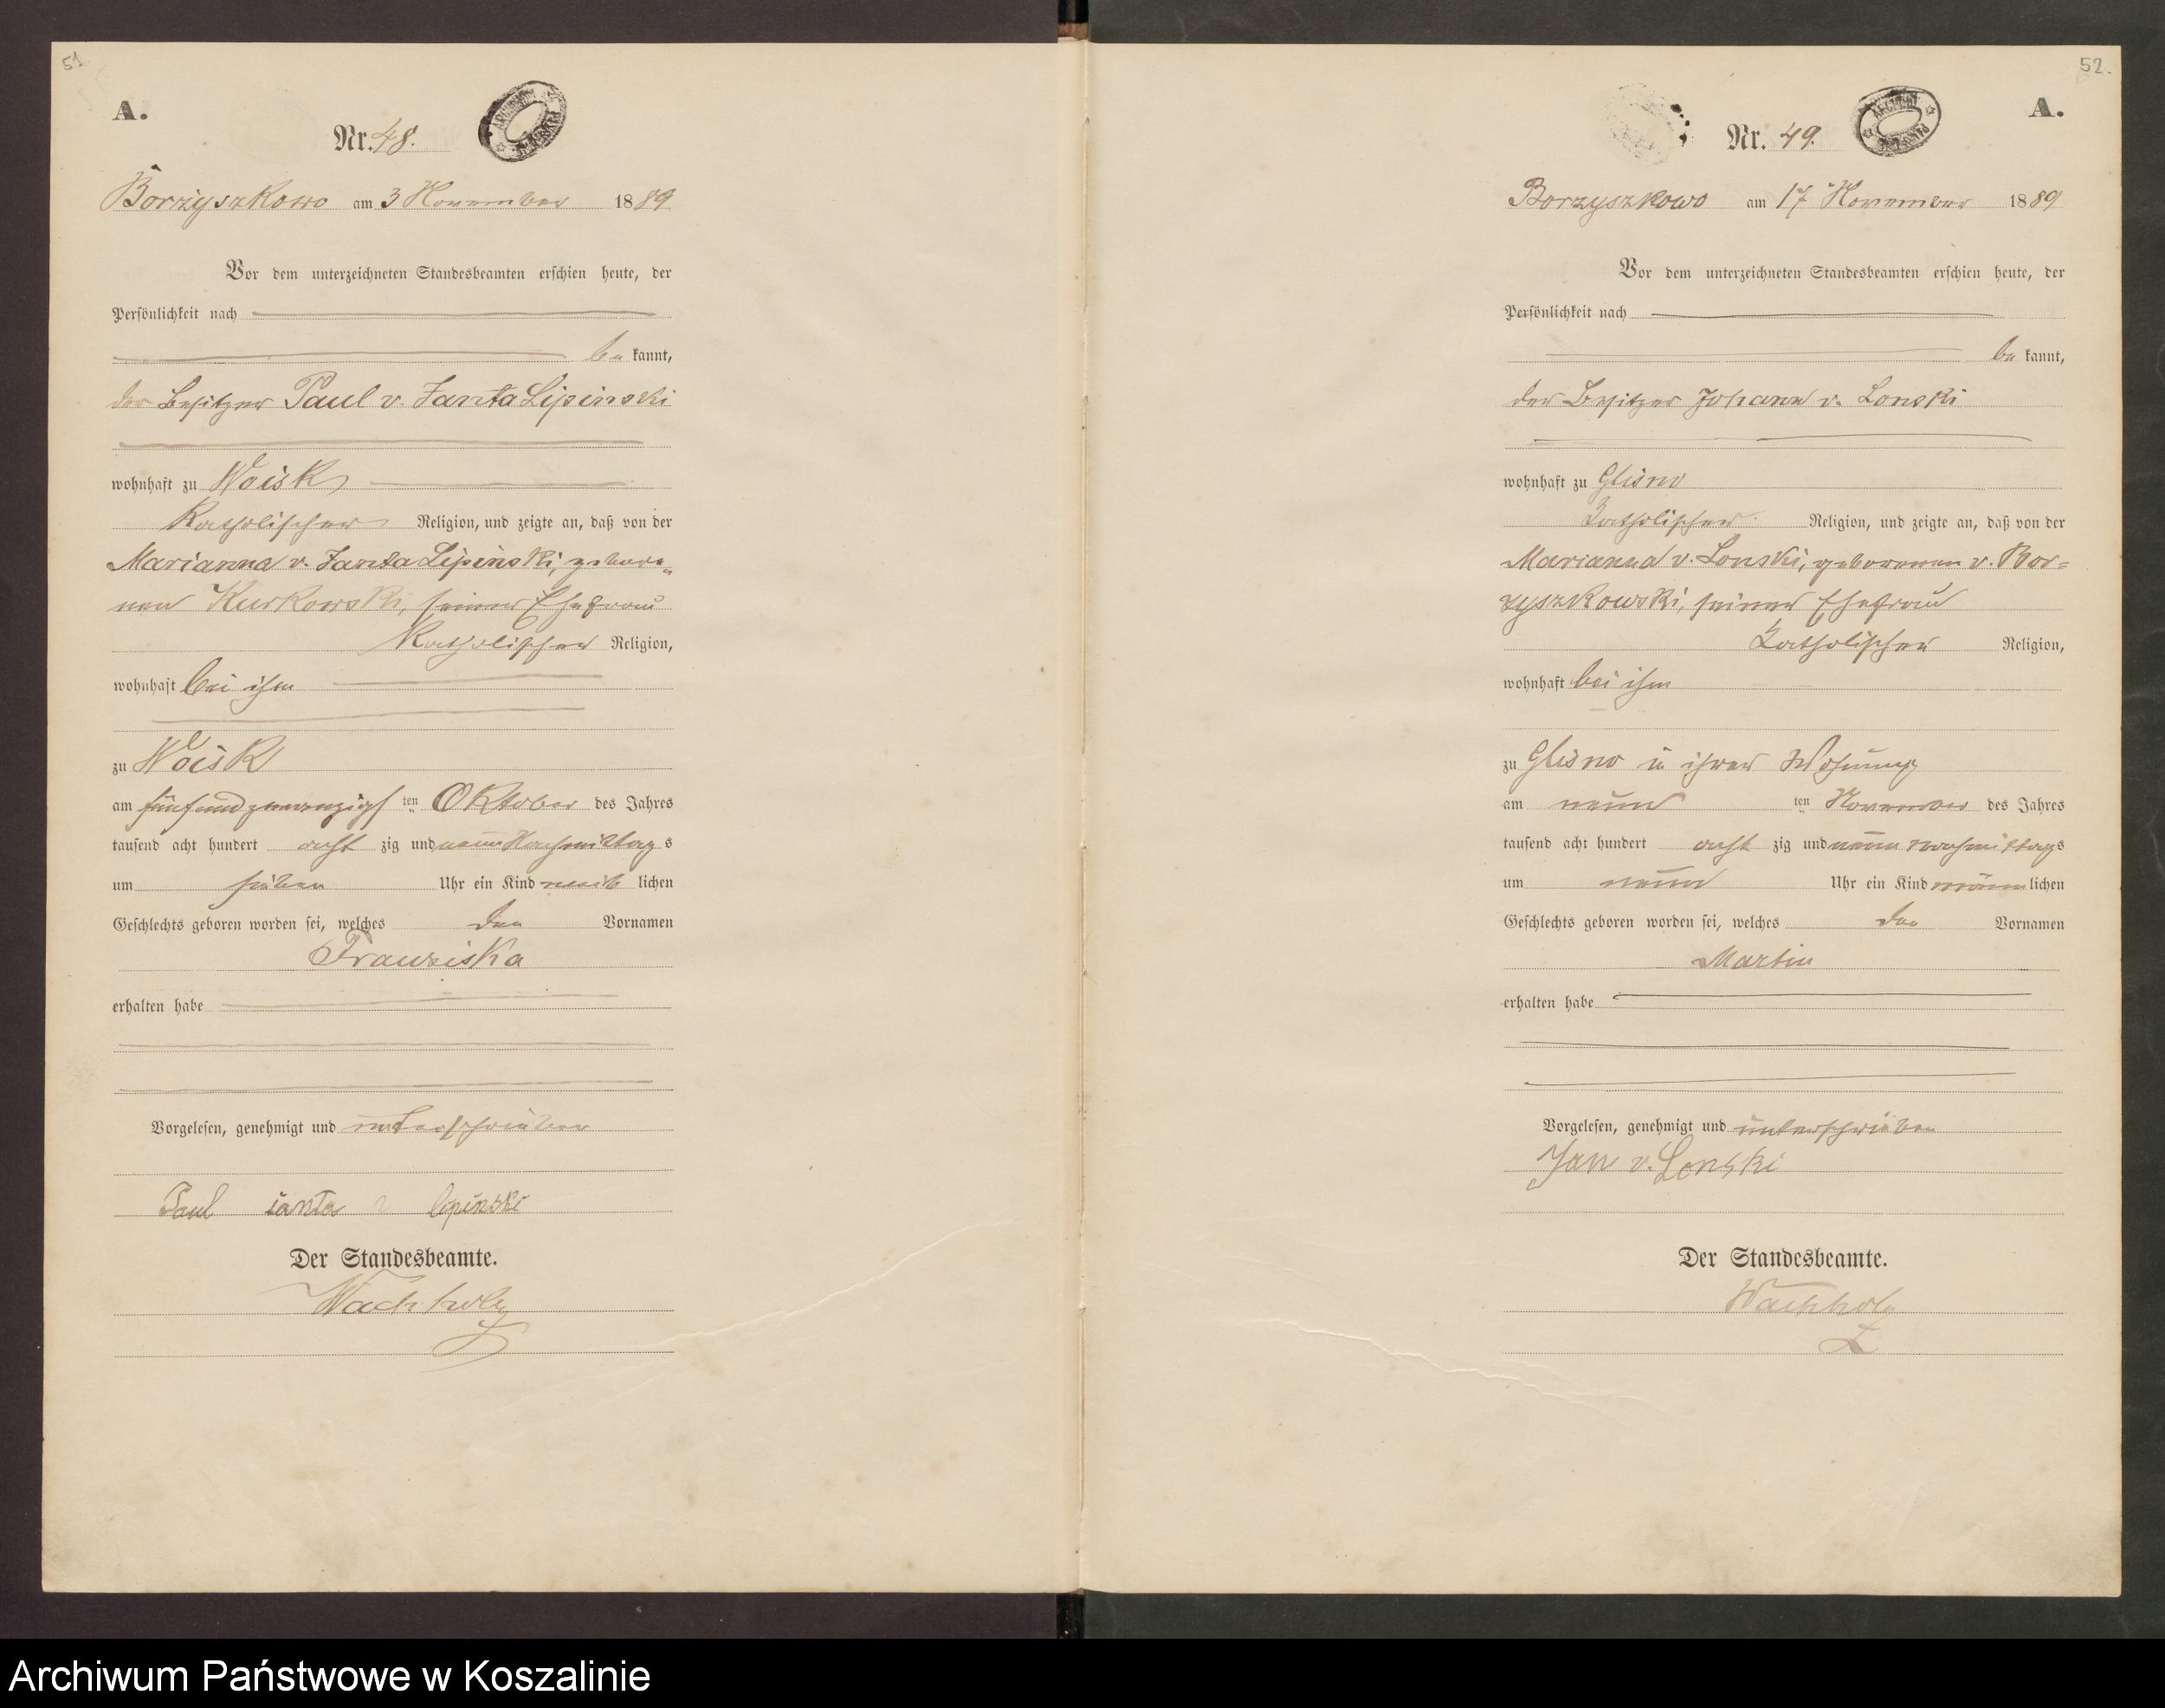 51
A.
Nr. 48.
Borzyszkowo am 3 November 1889
Vor dem unterzeichneten Standesbeamten erschien heute, der
Persönlichkeit nach
be kannt,
der Besitzer Paul v. Janta Lipinski
wohnhaft zu Woisk
Katholischer Religion, und zeigte an, daß von der
Marianna v. Janta Lipinski, gebore„
nen Kurkowski, seiner Ehefrau
Katholischer Religion,
wohnhaft bei ihm
zu Woisk
am fünfundzwanzigsten Oktober des Jahres
tausend acht hundert acht zig und neun Nachmittags
um sieben Uhr ein Kind weib lichen
Geschlechts geboren worden sei, welches den Vornamen
Franziska
erhalten habe
Vorgelesen, genehmigt und unterschrieben
Paul ianta v lipinski
Der Standesbeamte.
Wachholz
52.
A.
Nr. 49.
Borzyszkowo am 17 November 1889
Vor dem unterzeichneten Standesbeamten erschien heute, der
Persönlichkeit nach
be kannt,
der Besitzer Johann v. Lonski
wohnhaft zu Glisno
Katholischer Religion, und zeigte an, daß von der
Marianna v. Lonski, geborenen v. Bor=
zyszkowski, seiner Ehefrau
Katholischer Religion,
wohnhaft bei ihm
zu Glisno in ihrer Wohnung
am neun ten November des Jahres
tausend acht hundert acht zig und neun nachmittags
um neun Uhr ein Kind männlichen
Geschlechts geboren worden sei, welches den Vornamen
Martin
erhalten habe
Vorgelesen, genehmigt und unterschrieben
Jan v. Lonski
Der Standesbeamte.
Wachholz
Archiwum Państwowe w Koszalinie